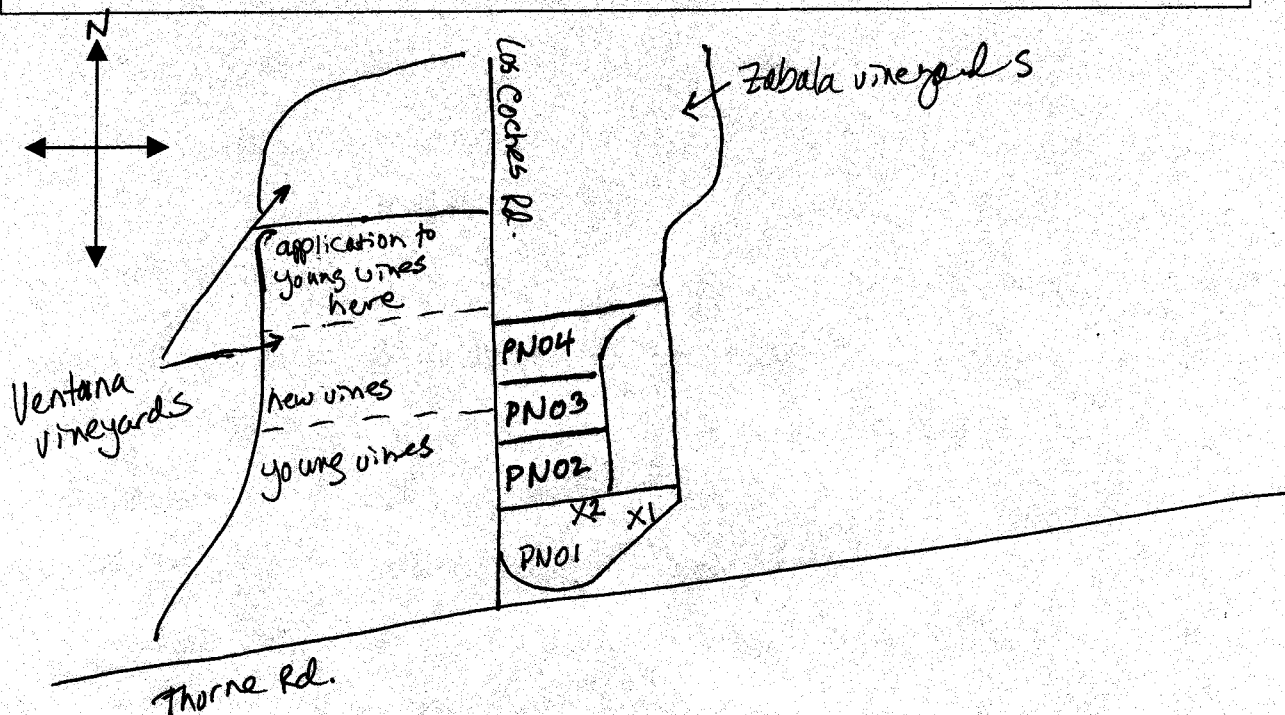 N
Los Coches Rd.
Zabala vineyards
application to
young vines
here
PN04
Ventana
vineyards
new vines
PN03
young vines
PN02
X2 X1
PN01
Thorne Rd.